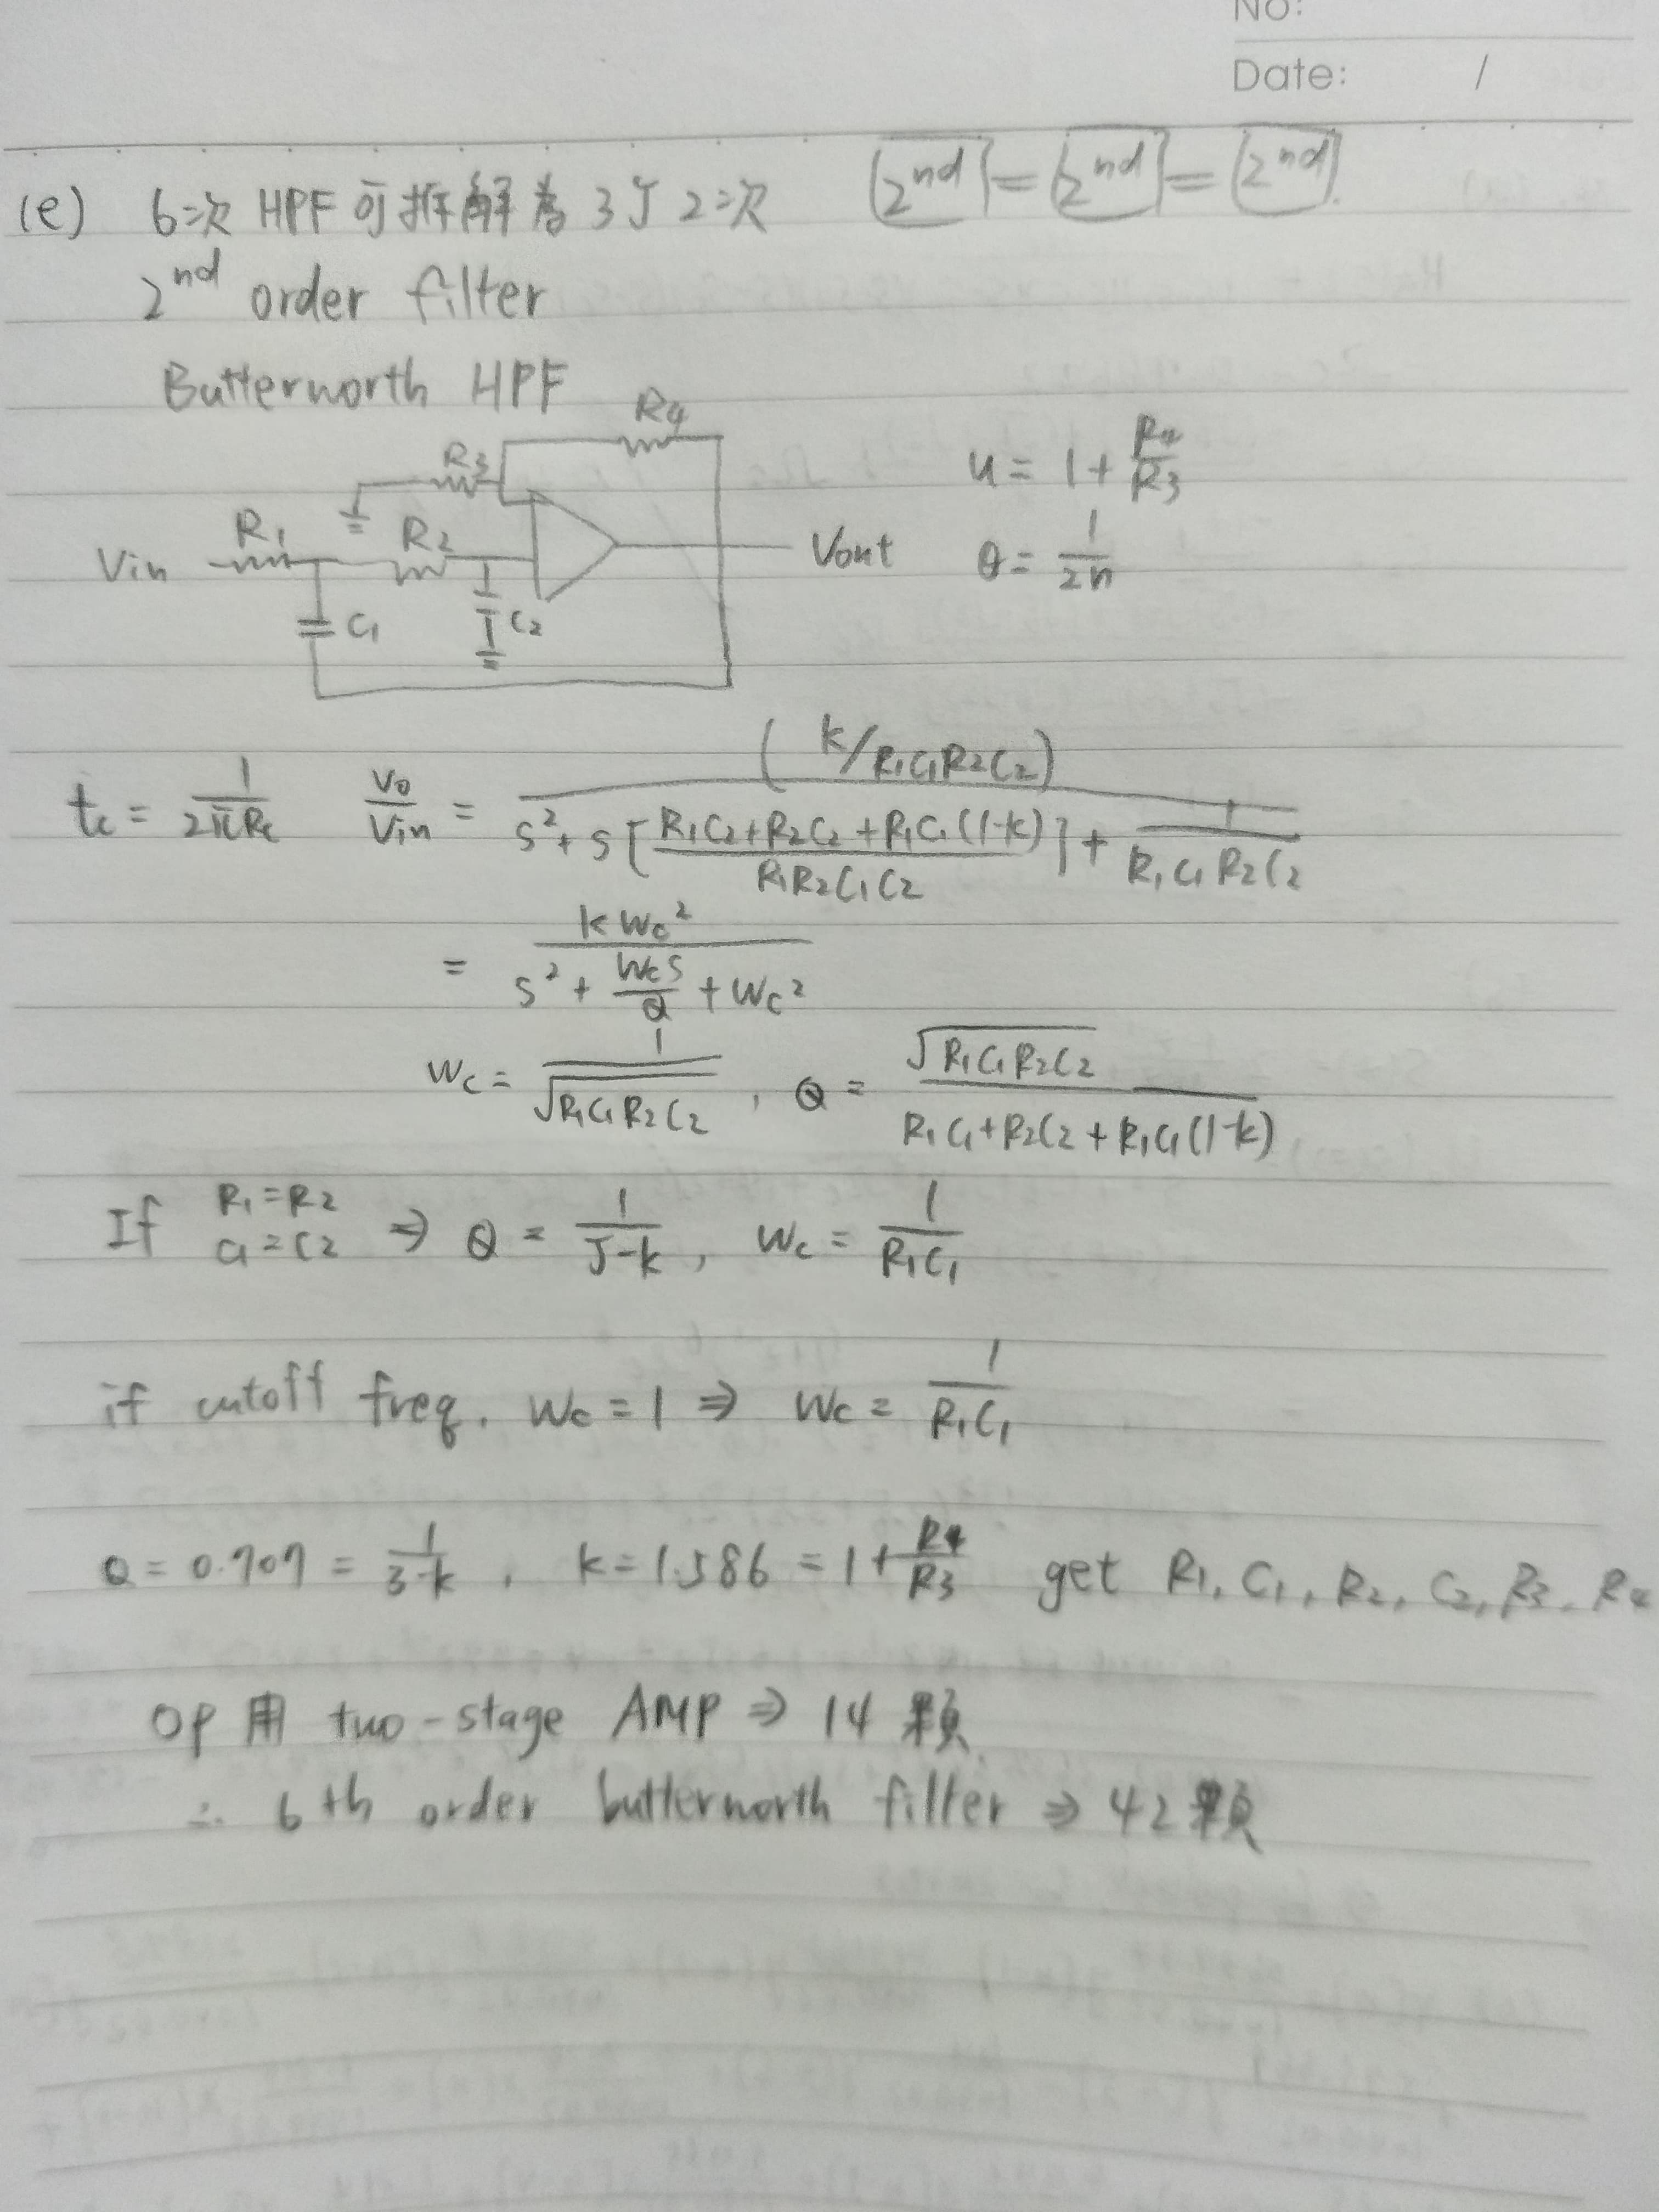 No:
Date: /
(e) 6次 HPF 可拆解為 3个 2次 [2nd]=[2nd]=[2nd].
2nd order filter
Butterworth HPF
R4
R3
u = 1 + R4/R3
R1 R2
Vin Vout θ = 1/2n
C1 C2
tc = 1/2πRc Vo/Vin = (k/R1C1R2C2) / s²+s[(R1C2+R2C2+R1C1(1-k))/R1R2C1C2]+1/R1C1R2C2
= kWc² / s²+Wcs/Q+Wc²
Wc = 1/√R1C1R2C2 , Q = √R1C1R2C2 / R1C1+R2C2+R1C1(1-k)
If R1=R2 C1=C2 ⇒ Q = 1/3-k , Wc = 1/R1C1
if cutoff freq. Wc = 1 ⇒ Wc = 1/R1C1
Q = 0.707 = 1/3-k , k=1.586 = 1+R4/R3 get R1, C1, R2, C2, R3, R4
OP 用 two-stage AMP ⇒ 14 顆
∴ 6th order butterworth filter ⇒ 42 顆